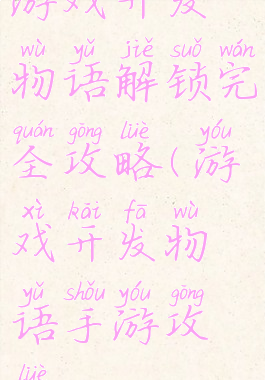 游戏开发
wù yǔ jiě suǒ wán
物语解锁完
quán gōng lüè yóu
全攻略(游
xì kāi fā wù
戏开发物
yǔ shǒu yóu gōng
语手游攻
lüè